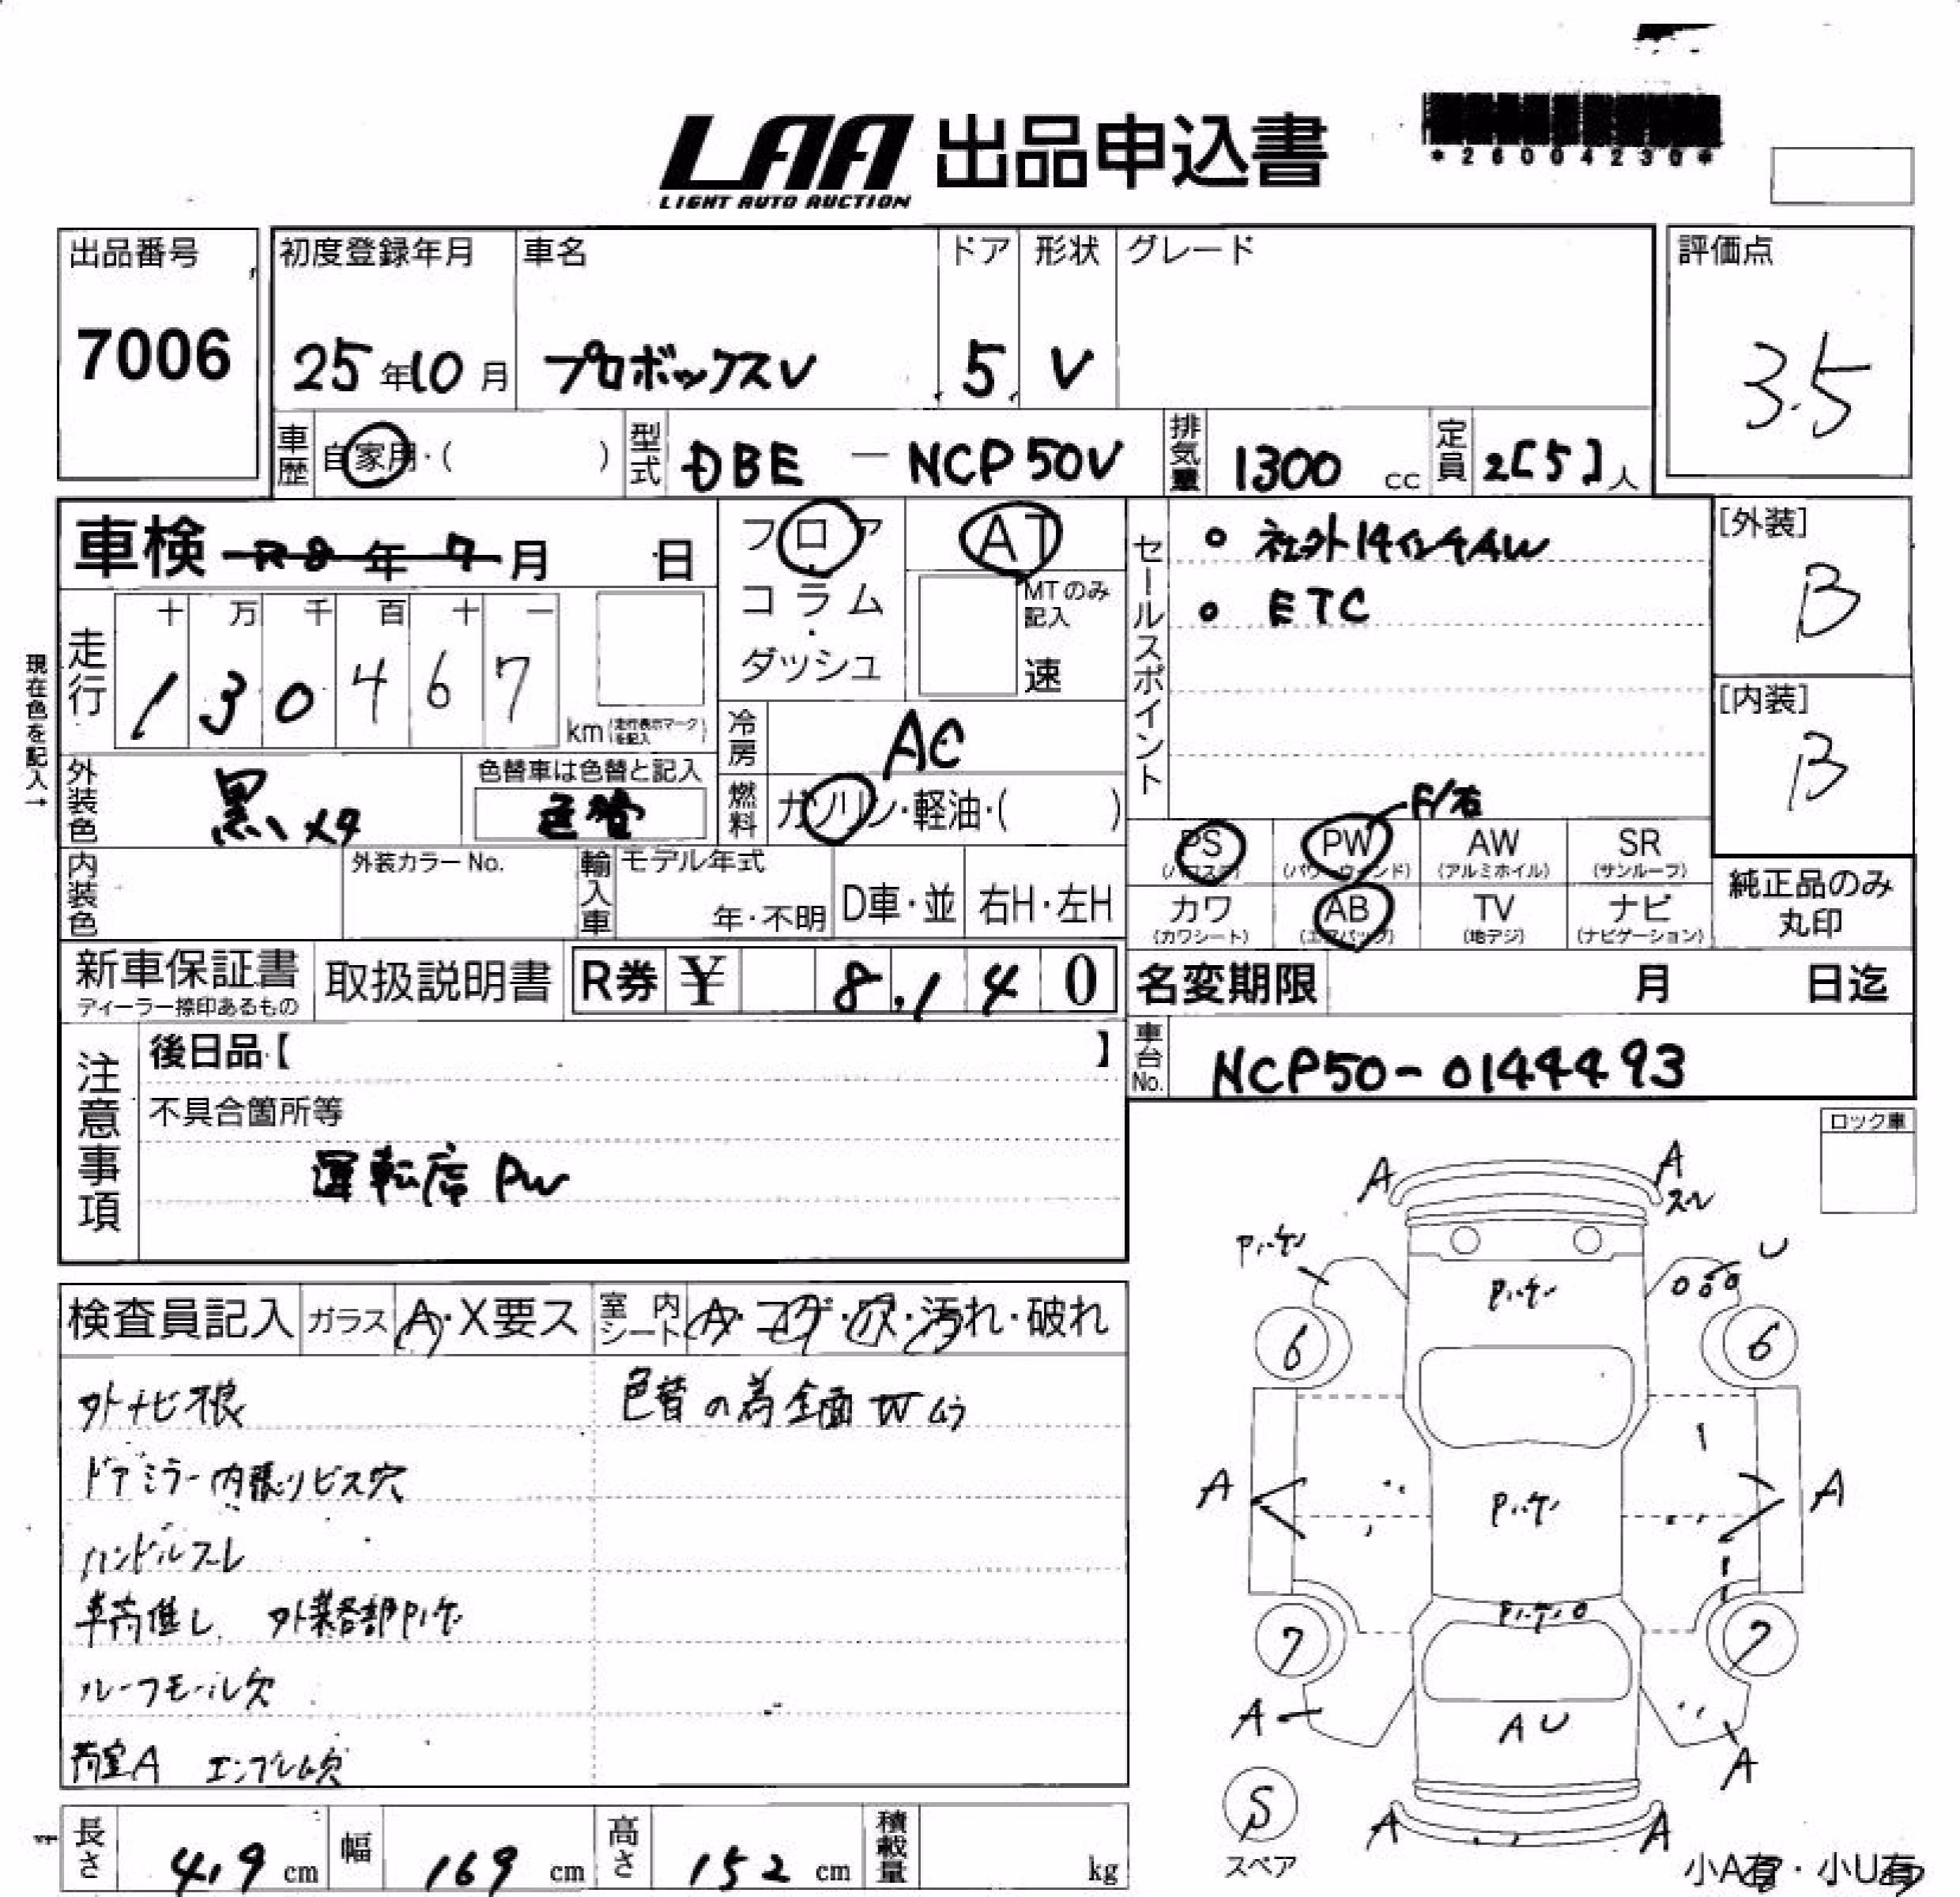 LAA 出品申込書
LIGHT AUTO AUCTION
出品番号
7006
初度登録年月
25年10月
車名
プロボックスV
ドア
5
形状
V
グレード
評価点
3.5
車歴 自家用・( )
型式 DBE - NCP50V
排気量 1300 cc
定員 2[5]人
車検 R8年7月 日
フロア
コラム
ダッシュ
AT
MTのみ記入
速
セールスポイント
・社外14インチAW
・ETC
[外装]
B
[内装]
B
現在色を記入→
走行
十 万 千 百 十 一
1 3 0 4 6 7
km(走行表示マークを記入)
冷房 AC
外装色 黒メタ
色替車は色替と記入
色替
燃料 ガソリン・軽油・( )
F/右
PS PW AW SR
(パワステ) (パワーウィンド) (アルミホイル) (サンルーフ)
カワ AB TV ナビ
(カワシート) (エアバッグ) (地デジ) (ナビゲーション)
純正品のみ
丸印
内装色
外装カラーNo.
輸入車
モデル年式
年・不明
D車・並
右H・左H
新車保証書
ディーラー捺印あるもの
取扱説明書
R券 ¥ 8,140
名変期限 月 日迄
車台No. NCP50-0144493
注意事項
後日品【 】
不具合箇所等
運転席 PW
ロック車
検査員記入
ガラス A・X要ス
室内シート A・コゲ・穴・汚れ・破れ
外ナビ根
色替の為全面Wムラ
ドアミラー内張りビス穴
ハンドルスレ
車高低し 外装各部Pハゲ
ルーフモール欠
荷室A エンブレム欠
A A
スレ
U
6 6
A A
7 7
A AU A
A A
S
スペア
小A有・小U有
長さ 419 cm
幅 169 cm
高さ 152 cm
積載量 kg